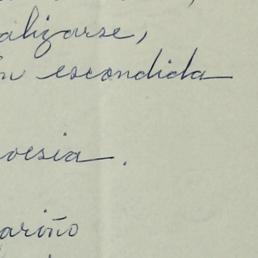 alizarse,
ón escondida
oesia.
ariño